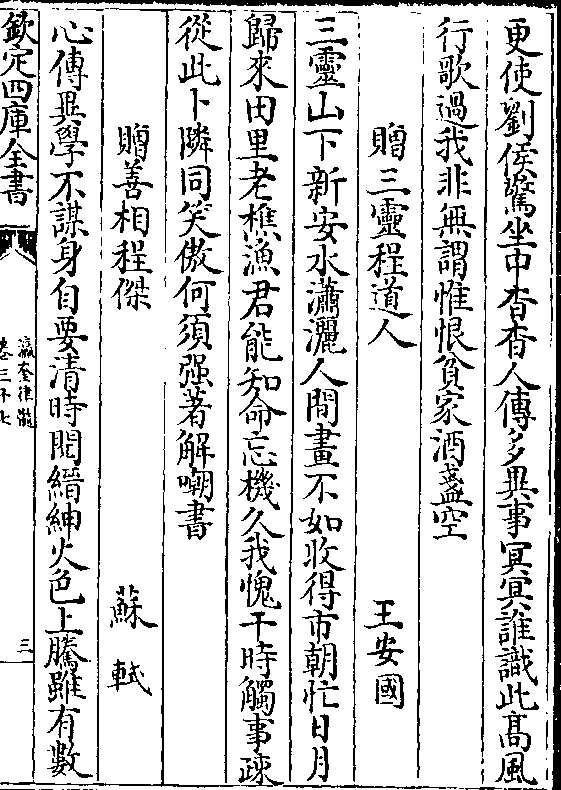 更使劉侯驚坐中杳杳人傳多異事冥冥誰識此髙風
行歌過我非無謂惟恨貧家酒盞空
贈三靈程道人 王安國
三靈山下新安水瀟灑人間畫不如收得市朝忙日月
歸來田里老樵漁君能知命忘機久我愧干時觸事疎
從此卜隣同笑傲何須强著解嘲書
贈善相程傑 蘇軾
心傳異學不謀身自要清時閱縉紳火色上騰雖有數
欽定四庫全書
瀛奎律髓
卷三十七
三